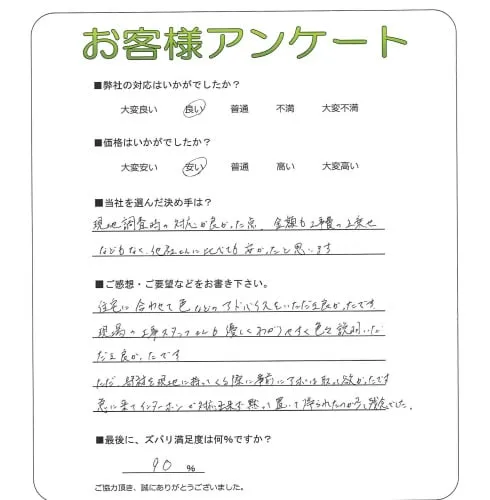 お客様アンケート
■弊社の対応はいかがでしたか?
大変良い 良い 普通 不満 大変不満
■価格はいかがでしたか?
大変安い 安い 普通 高い 大変高い
■当社を選んだ決め手は?
現地調査時の対応が良かった点、金額も工事費の上乗せ
などもなく、他社さんに比べても安かったと思います
■ご感想・ご要望などをお書き下さい。
住宅に合わせて色などのアドバイスをいただき良かったです
現場の工事スタッフさんも優しくわかりやすく色々説明いただ
き良かったです
ただ、部材を現地に持ってくる際に事前にアポは取って欲しかったです
急に来てインターホンが対応出来ず黙って置いて帰られたのが少し残念でした。
■最後に、ズバリ満足度は何%ですか?
90 %
ご協力頂き、誠にありがとうございました。